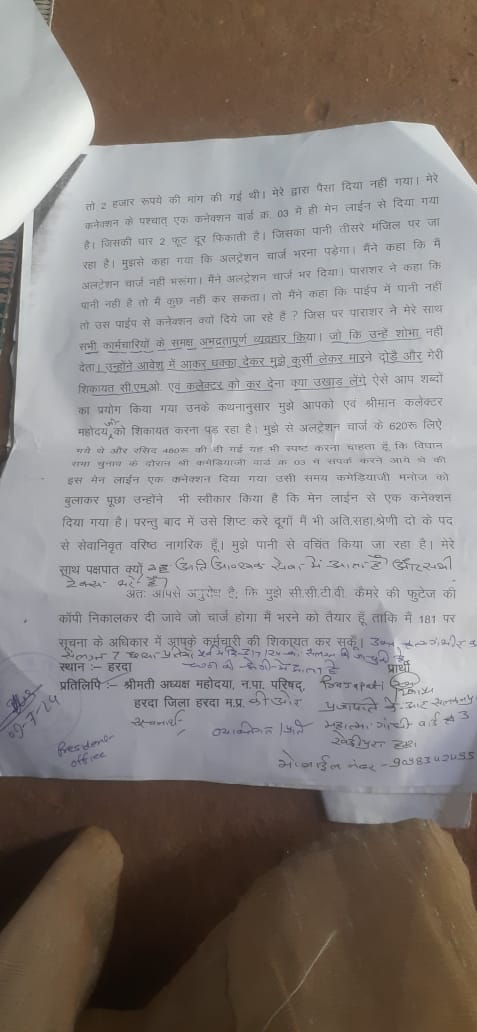 तो 2 हजार रूपये की मांग की गई थी। मेरे द्वारा पैसा दिया नहीं गया। मेरे
कनेक्शन के पश्चात् एक कनेक्शन वार्ड क्र. 03 में ही मेन लाईन से दिया गया
है। जिसकी धार 2 फूट दूर फिकाती है। जिसका पानी तीसरे मंजिल पर जा
रहा है। मुझसे कहा गया कि अलट्रेशन चार्ज भरना पड़ेगा। मैंने कहा कि मैं
अलट्रेशन चार्ज नही भरूंगा। मैंने अलट्रेशन चार्ज भर दिया। पाराशर ने कहा कि
पानी नही है तो मैं कुछ नही कर सकता। तो मैंने कहा कि पाईप में पानी नहीं
तो उस पाईप से कनेक्शन क्यों दिये जा रहे है ? जिस पर पाराशर ने मेरे साथ
सभी कार्मचारियों के समक्ष अभद्रतापुर्ण व्यवहार किया। जो कि उन्हें शोभा नही
देता। उन्होंने आवेश में आकर धक्का देकर मुझे कुर्सी लेकर मारने दोड़ै और मेरी
शिकायत सी.एम.ओ. एवं कलेक्टर को कर देना क्या उखाड़ लेंगे ऐसे आप शब्दों
का प्रयोग किया गया उनके कथनानुसार मुझे आपको एवं श्रीमान कलेक्टर
महोदय को शिकायत करना पड़ रहा है। मुझे से अलट्रेशन चार्ज के 620रू लिए
गये थे और रसिद 460रू की दी गई यह भी स्पष्ट करना चाहता हूँ कि विधान
सभा चुनाव के दौरान श्री कमेड़ियाजी वार्ड क्र 03 में संपर्क करने आये थे की
इस मेन लाईन एक कनेक्शन दिया गया उसी समय कमेड़ियाजी मनोज को
बुलाकर पूछा उन्होंने भी स्वीकार किया है कि मेन लाईन से एक कनेक्शन
दिया गया है। परन्तु बाद में उसे शिप्ट करे दूगॉं मैं भी अति.सहा.श्रेणी दो के पद
से सेवानिवृत वरिष्ट नागरिक हूँ। मुझे पानी से वचित किया जा रहा है। मेरे
साथ पक्षपात क्यों यह अति आवश्यक सेवा में आता है
अतः आपसे अनुरोध है, कि मुझे सी.सी.टी.वी. कैमरे की फुटेज की
कॉपी निकालकर दी जावे जो चार्ज होगा मैं भरने को तैयार हूँ ताकि मैं 181 पर
सूचना के अधिकार में आपके कर्मचारी की शिकायत कर सकूँ।
स्थान :– हरदा प्रार्थी
प्रतिलिपि :– श्रीमती अध्यक्ष महोदया, न.पा. परिषद्, Prajapati
हरदा जिला हरदा म.प्र. की ओर
महात्मा गांधी वार्ड 3
President
office
मोबाईल नंबर -